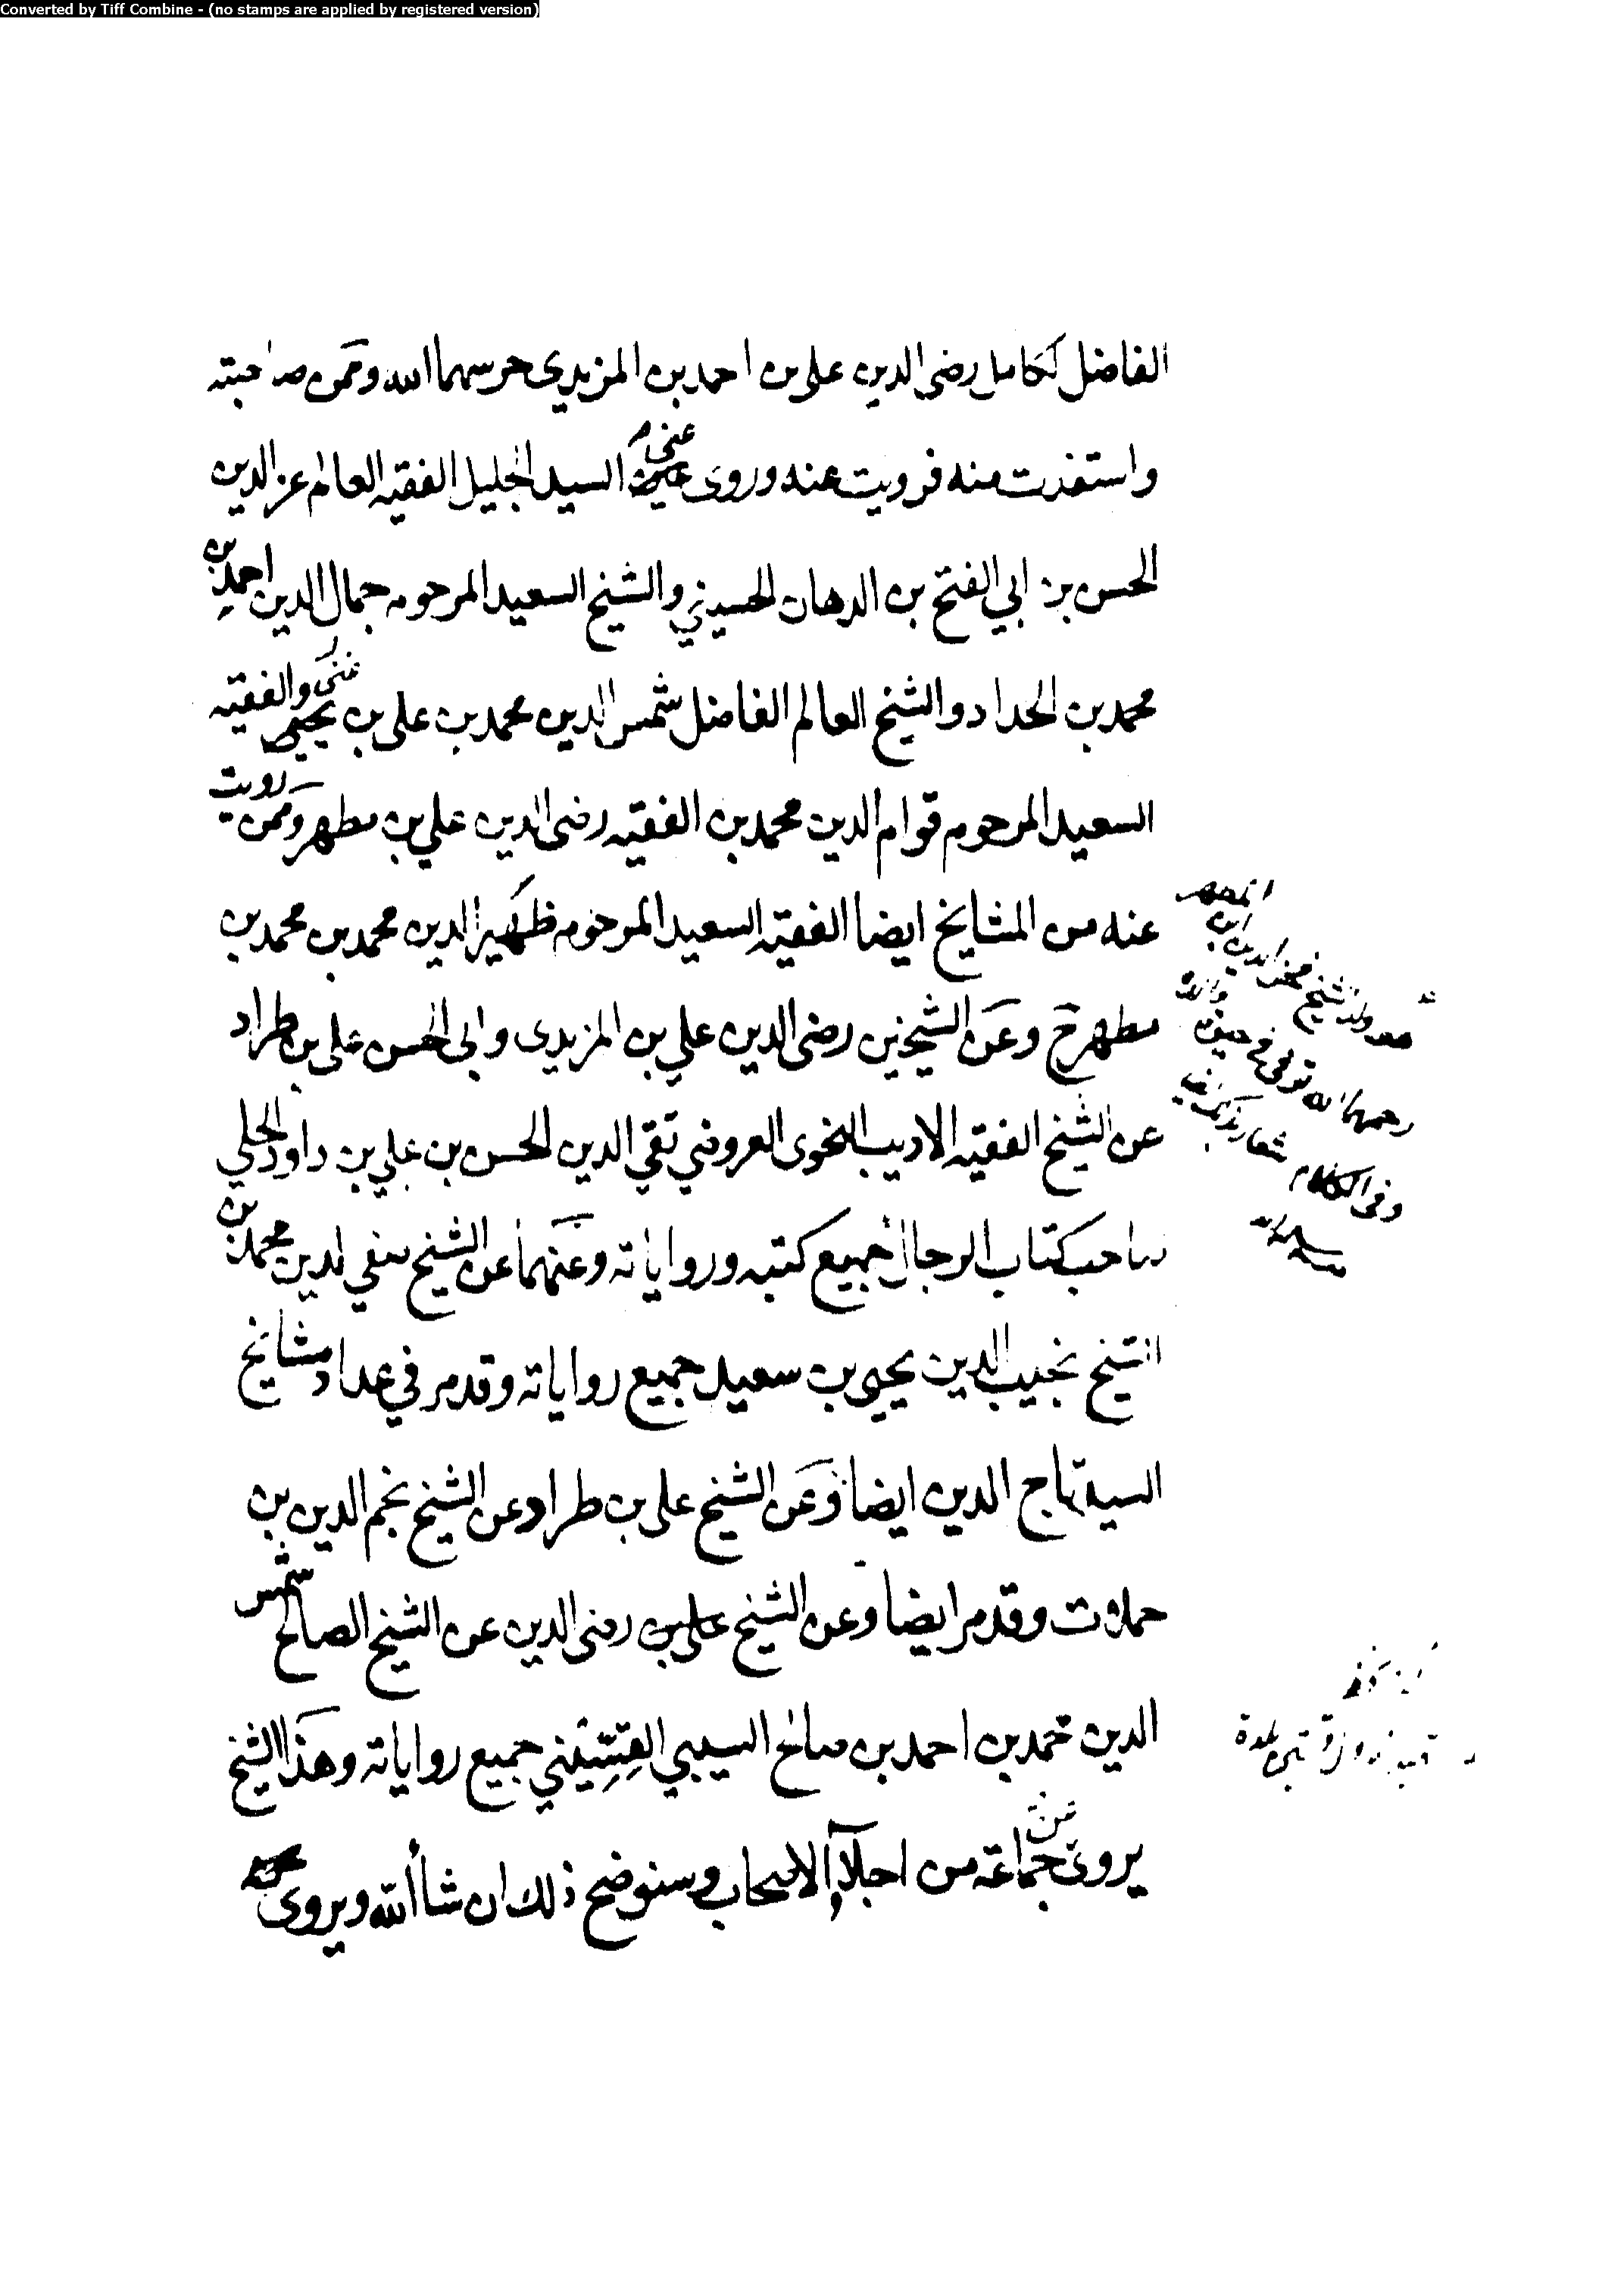 Converted by Tiff Combine - (no stamps are applied by registered version)
الفاضل الكامل رضى الدين على بن احمد بن المزيدى حرسهما الله وممن صاحبته
واستفدت منه فرويت عنه وروى عنى السيد الجليل الفقيه العالم عز الدين
الحسن بن ابي الفتح بن الدهان الحسيني والشيخ السعيد المرحوم جمال الدين احمد بن
محمد بن الحداد والشيخ العالم الفاضل شمس الدين محمد بن على بن يحيى والفقيه
السعيد المرحوم قوام الدين محمد بن الفقيه رضى الدين علي بن مطهر وممن رويت
عنه من المشايخ ايضا الفقيه السعيد المرحوم ظهير الدين محمد بن محمد بن
مطهر ح وعن الشيخين رضى الدين علي بن المزيدى وابى الحسن على بن طراد
عن الشيخ الفقيه الاديب النحوى العروضي تقي الدين الحسن بن علي بن داود الحلي
صاحب كتاب الرجال جميع كتبه ورواياته وعنهما عن الشيخ صفي الدين محمد بن
الشيخ نجيب الدين يحيى بن سعيد جميع رواياته وقد مر في عداد مشايخ
السيد تاج الدين ايضا وعن الشيخ على بن طراد عن الشيخ نجم الدين بن
حملات وقد مر ايضا وعن الشيخ رضى الدين عن الشيخ الصالح شمس
الدين محمد بن احمد بن صالح السيبي القسيني جميع رواياته وهذا الشيخ
يروى عن جماعة من اجلاء الاصحاب وسنوضح ذلك ان شاء الله ويروى
ولد الشيخ فخر الدين
رحمهما الله توفى في
وفى الكلام